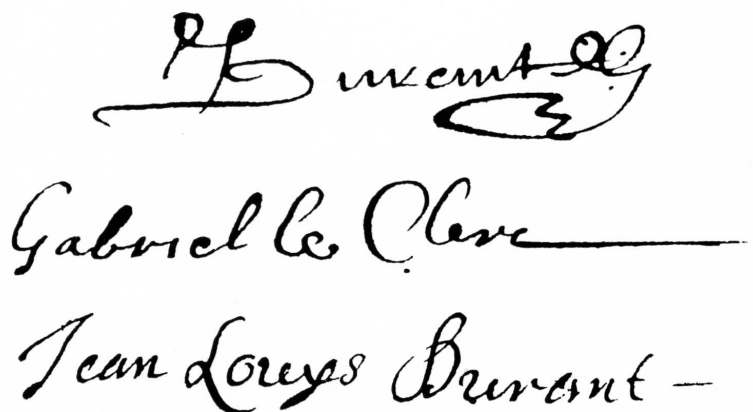 Durant
Gabriel le Clerc
Jean Louys Durant